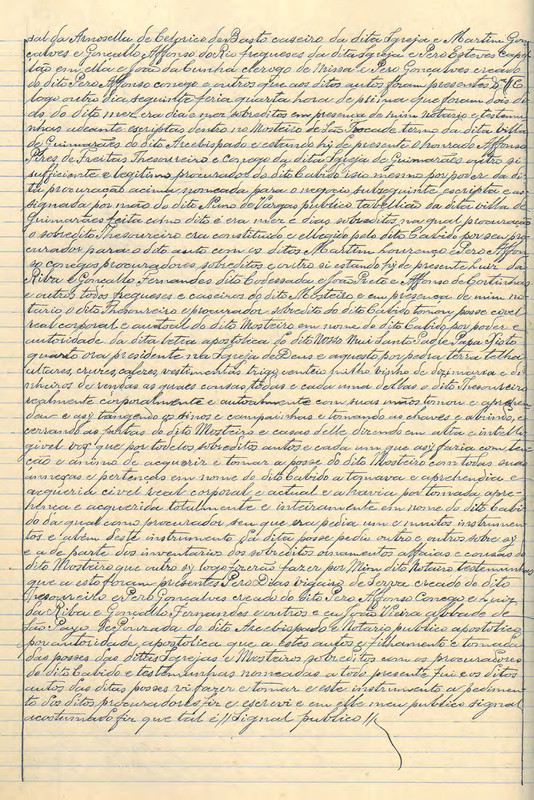 sal da Arnosella de Celorico de Basto caseiro da dita Igreja e Martim Gon
çalves e Gonçallo Affonso do Rio fregueses da dita Igreja e Pero Esteves Capel
lão em ella e João da Cunha clerigo de Missa e Pero Gonçalves creado
do dito Pero Affonso conego e outros que aos ditos autos foram presentes E
logo outro dia seguinte feria quarta hora de prima que foram dois di
as do dito mez era dia e mor sobreditos em presença de mim notario e testemu
nhas adeante escriptas dentro no Mosteiro de São termo da dita villa
de Guimarães do dito Arcebispado e estando hi de presente o honrado Affonso
Pires de Freitas Thesoureiro e Conego da dita Igreja de Guimarães outro si
sufficiente e legitimo procurador do dito Cabido isso mesmo por poder da di
ta procuração acima nomeada para o negocio subsequente escripta e as
signada por mão do dito Nuno de Vargas publico tabellião da dita villa de
Guimarães feita como dito é era mez e dias sobreditos na qual procuração
o sobredito Thesoureiro era constituido e ellegido pelo dito Cabido por seu pro
curador para o dito auto com os ditos Martim Lourenço e Pero Affon
so conegos procuradores sobreditos e outro si estando hy de presente Luiz da
Riba e Gonçallo Fernandes dito Codessada e João Preto e Affonso de Cortinhas
e outros todos fregueses e caseiros do dito Mosteiro e em presença de mim no
tario o dito Thesoureiro e procurador sobredito do dito Cabido tomou posse civel
real corporal e autual do dito Mosteiro em nome do dito Cabido por poder e
autoridade da dita letra apostolica do dito Nosso Mui Santo Padre Papa Sisto
quarto ora presidente na Igreja de Deus e aquesto por pedra terra telha
altares cruzes calezes vestimentos trigo centeio milho vinho de dizimaria e di
nheiros de rendas as quaes cousas todas e cada uma dellas o dito Thesoureiro
realmente corporalmente e autualmente com suas mãos tomou e apren
deu e assy tangendo os sinos e campainhas e tomando as chaves e abrindo e
cerrando as portas do dito Mosteiro e casas delle dizendo em alta e intelle
givel voz que por todolos sobreditos autos e cada um que asy faria com ten
ção e animo de acquerir e tomar a posse do dito Mosteiro com todas suas
annexas e pertenças em nome do dito Cabido a tomava e aprehendia e
acqueria civel real corporal e actual e a havia por tomada apre
hensa e acquerida totalmente e inteiramente em nome do dito Cabi
do da qual como procurador seu que era pedia um e muitos instrumen
tos e alem deste instrumento da dita posse pediu outro e outros sobre sy
e a de parte dos inventarios dos sobreditos ornamentos alfaias e cousas do
dito Mosteiro que outro sy logo fizerão fazer por Mim dito Notario testemunhas
que a esto foram presentes Pero Dias vigairo de Serva creado do dito
Thesoureiro e Pero Gonçalves creado do dito Pero Affonso Conego e Luiz
da Riba e Gonçallo Fernandes e outros e eu João Vieira abbade de
São Payo de Pousada do dito Arcebispado e Notario publico apostolico
por autoridade apostolica que a estes autos e filhamento e tomada
das posses das ditas Igrejas e Mosteiros sobreditos com os procuradores
do dito Cabido e testemunhas nomeadas a todo presente fui e os ditos
autos das ditas posses vi fazer e tomar e este instrumento a pedimen
to dos ditos procuradores fiz e escrevi e em elle meu publico signal
acostumado fiz que tal é // Signal publico //